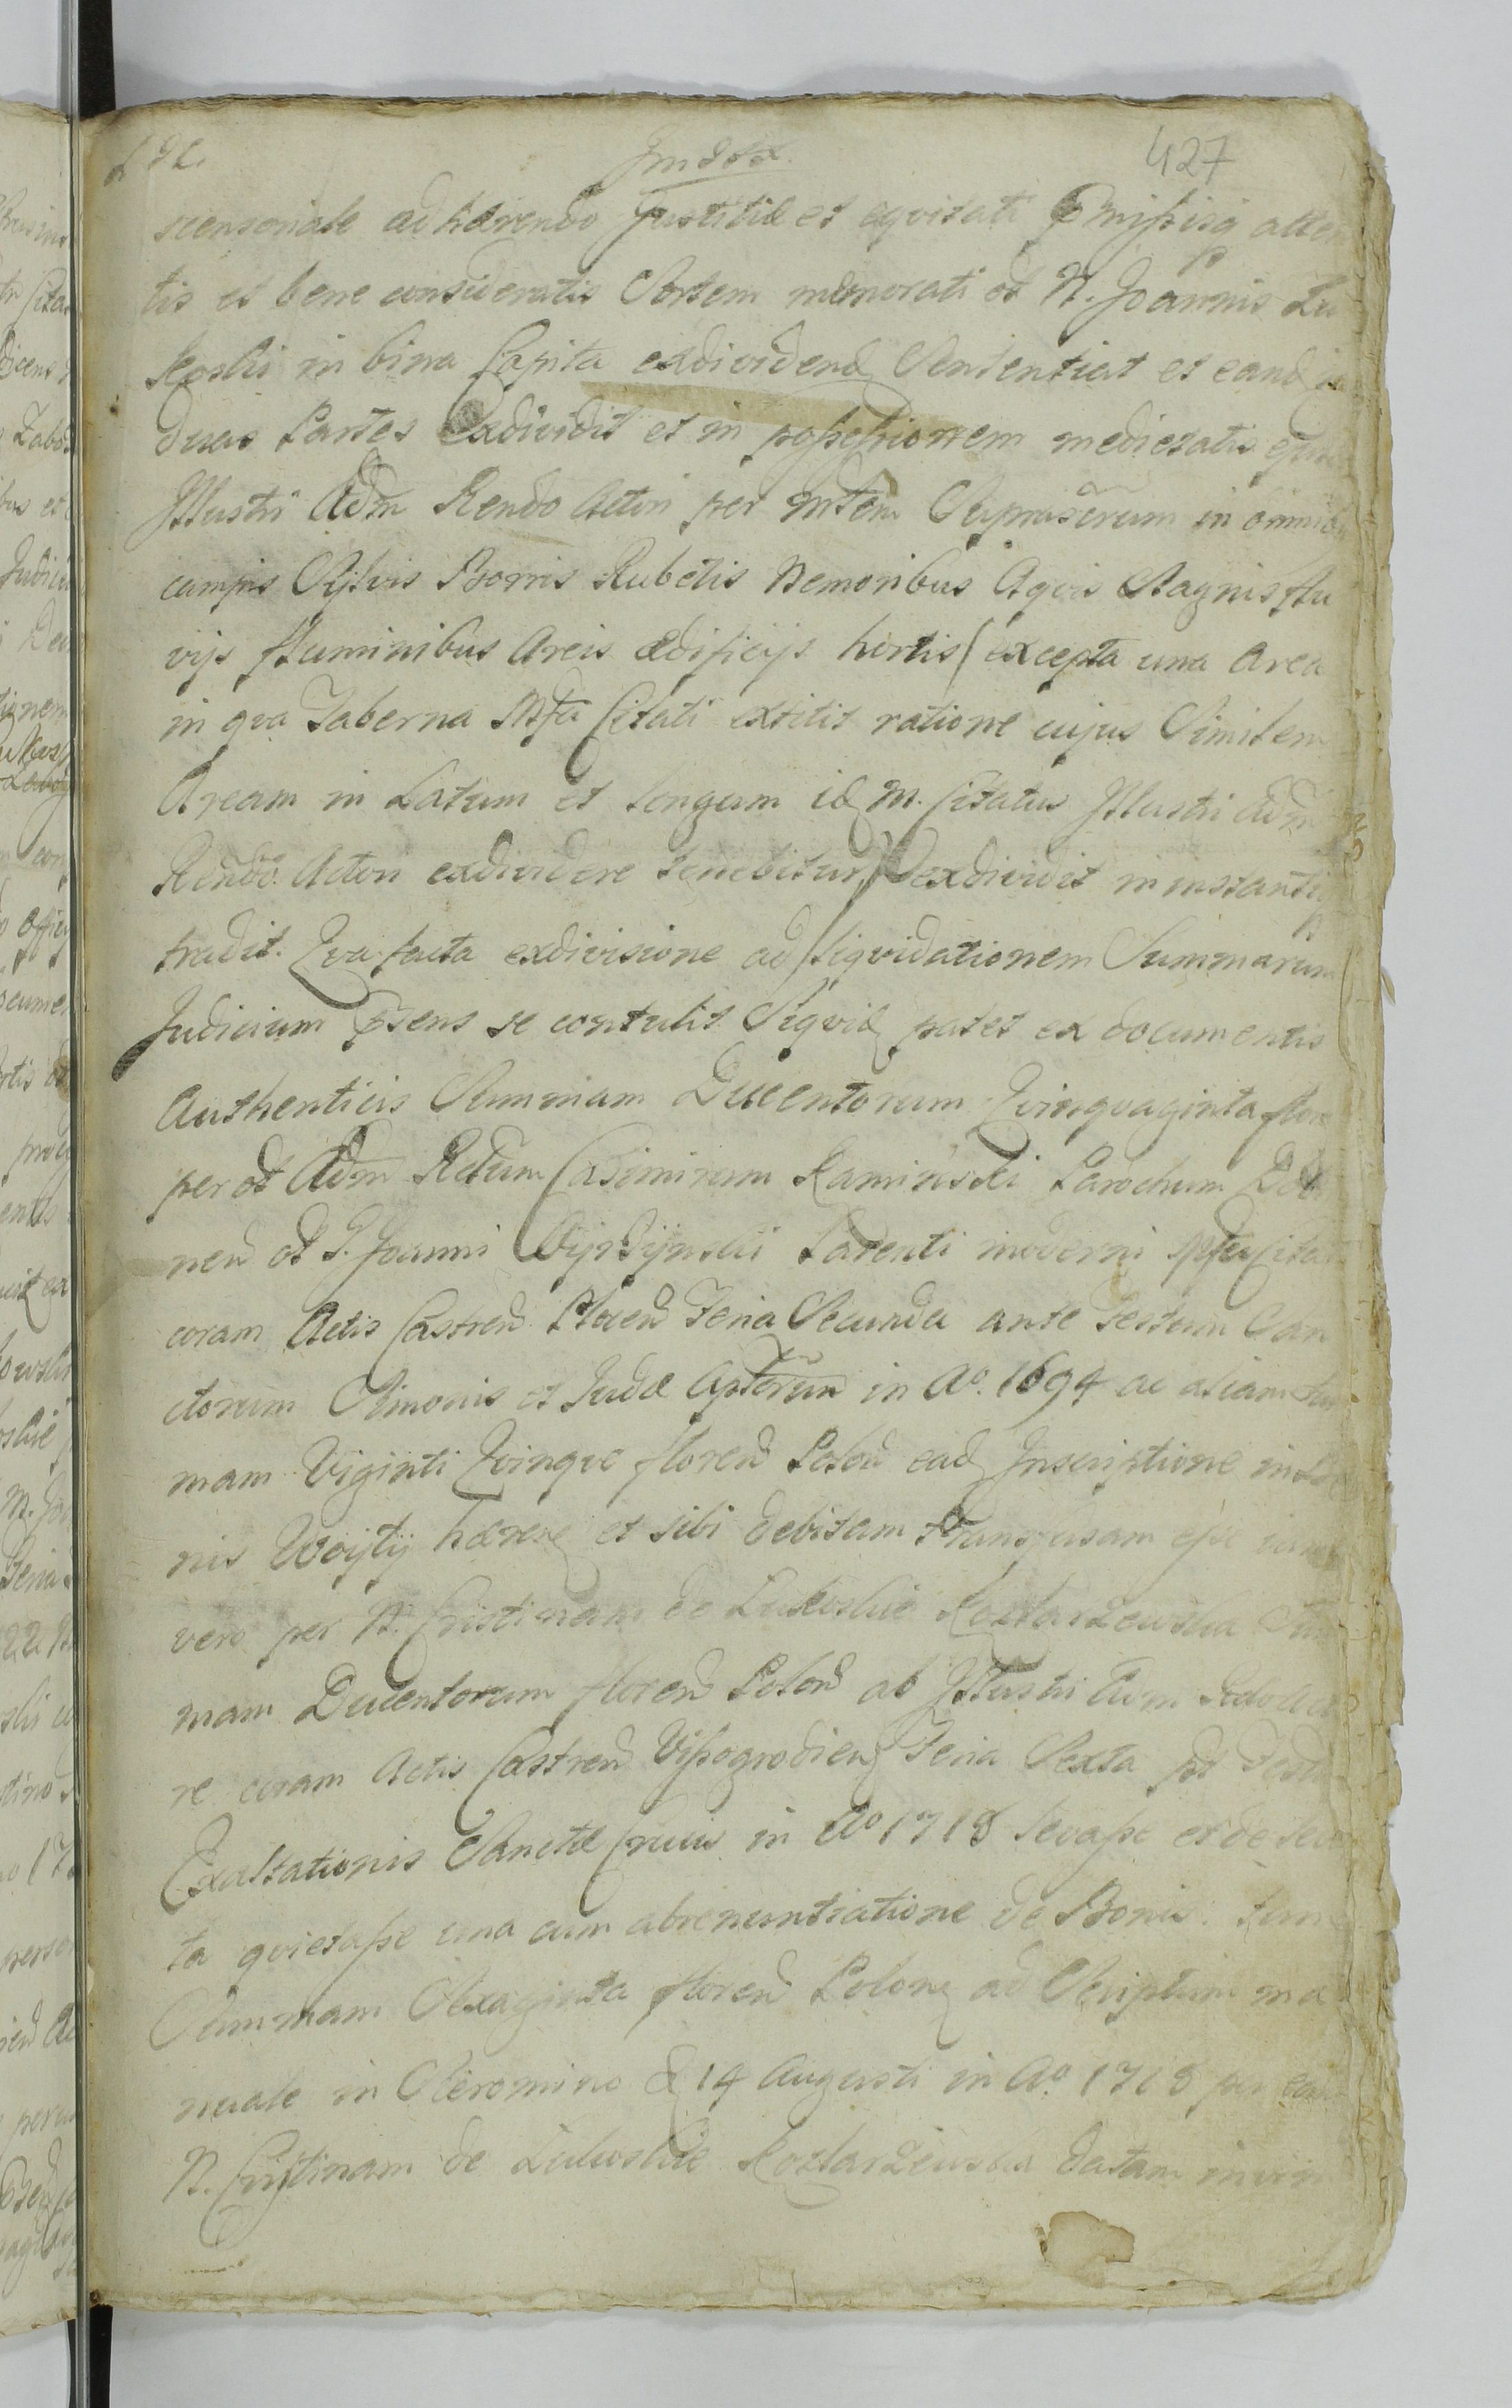 Induta.
427
scensoriale adhærendo Justitiæ et eqvitati Præmissis atten
tis et bene consideratis Sortem memorati ol N. Joannis Lu
koski in bina Capita exdividend Sententiat et eand in
duas Partes exdividit et in possessionem medietatis ejus
Illustri Adm Rendo Actori per Mtem Suprascrum in omnib
campis Sylvis Borris Rubetis Nemoribus Aqvis Stagnis flu
vijs fluminibus Areis ædificijs hortis (excepta una Area
in qva Taberna Mfci Citati extitit ratione cujus Similem
Aream in Latum et longum id M. Citatus Illustri Adm
Rendo Actori exdividere tenebitur) exdividit in instanti
tradit. Qva facta exdivisione ad liqvidationem Summarum
Judicium Præsens se contulit Siqvid patet ex documentis
Authenticis Summam Ducentorum Qvinqvaginta flore
per ol Adm Rdum Casimirum Kaminski Parochum
nen ol G. Joanni Parenti moderni Mfci Citati
coram Actis Castren Plocen Feria Secunda ante Festum San
ctorum Simonis et Judæ Aplorum in Ao. 1694 ac aliam Sum
mam Viginti Qvinqve floren Polon ead Inscriptione in Bo
nis Woijtij hærere et sibi debitam transfusam esse
vero per N. Cristinam de Lukoskie Kozlarzewska Sum
mam Ducentorum floren Polon ab Illustri Adm Rdo Acto
re coram Actis Castren Vissogrodien Feria Sexta pst Festu
Exaltationis Sanctæ Crucis in Ao 1718 levasse et de leva
ta qvietasse una cum abrenuntiatione de Bonis. tum
Summam Sexaginta floren Polon ad Scriptum ma
nuale in Sieromino d 14 Augusti in Ao. 1718 per eand
N. Cristinam de Lukoskie Kozlarzewska datam in vim